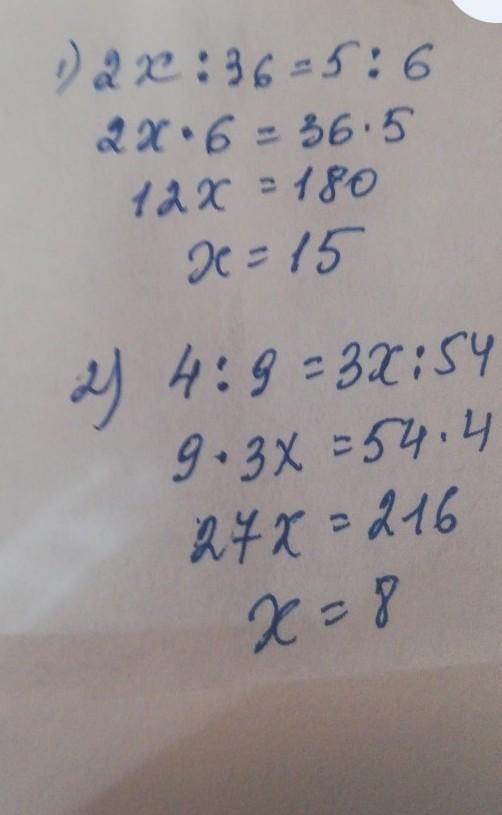 1) 2x : 36 = 5 : 6
2x · 6 = 36 · 5
12x = 180
x = 15
2) 4 : 9 = 3x : 54
9 · 3x = 54 · 4
27x = 216
x = 8